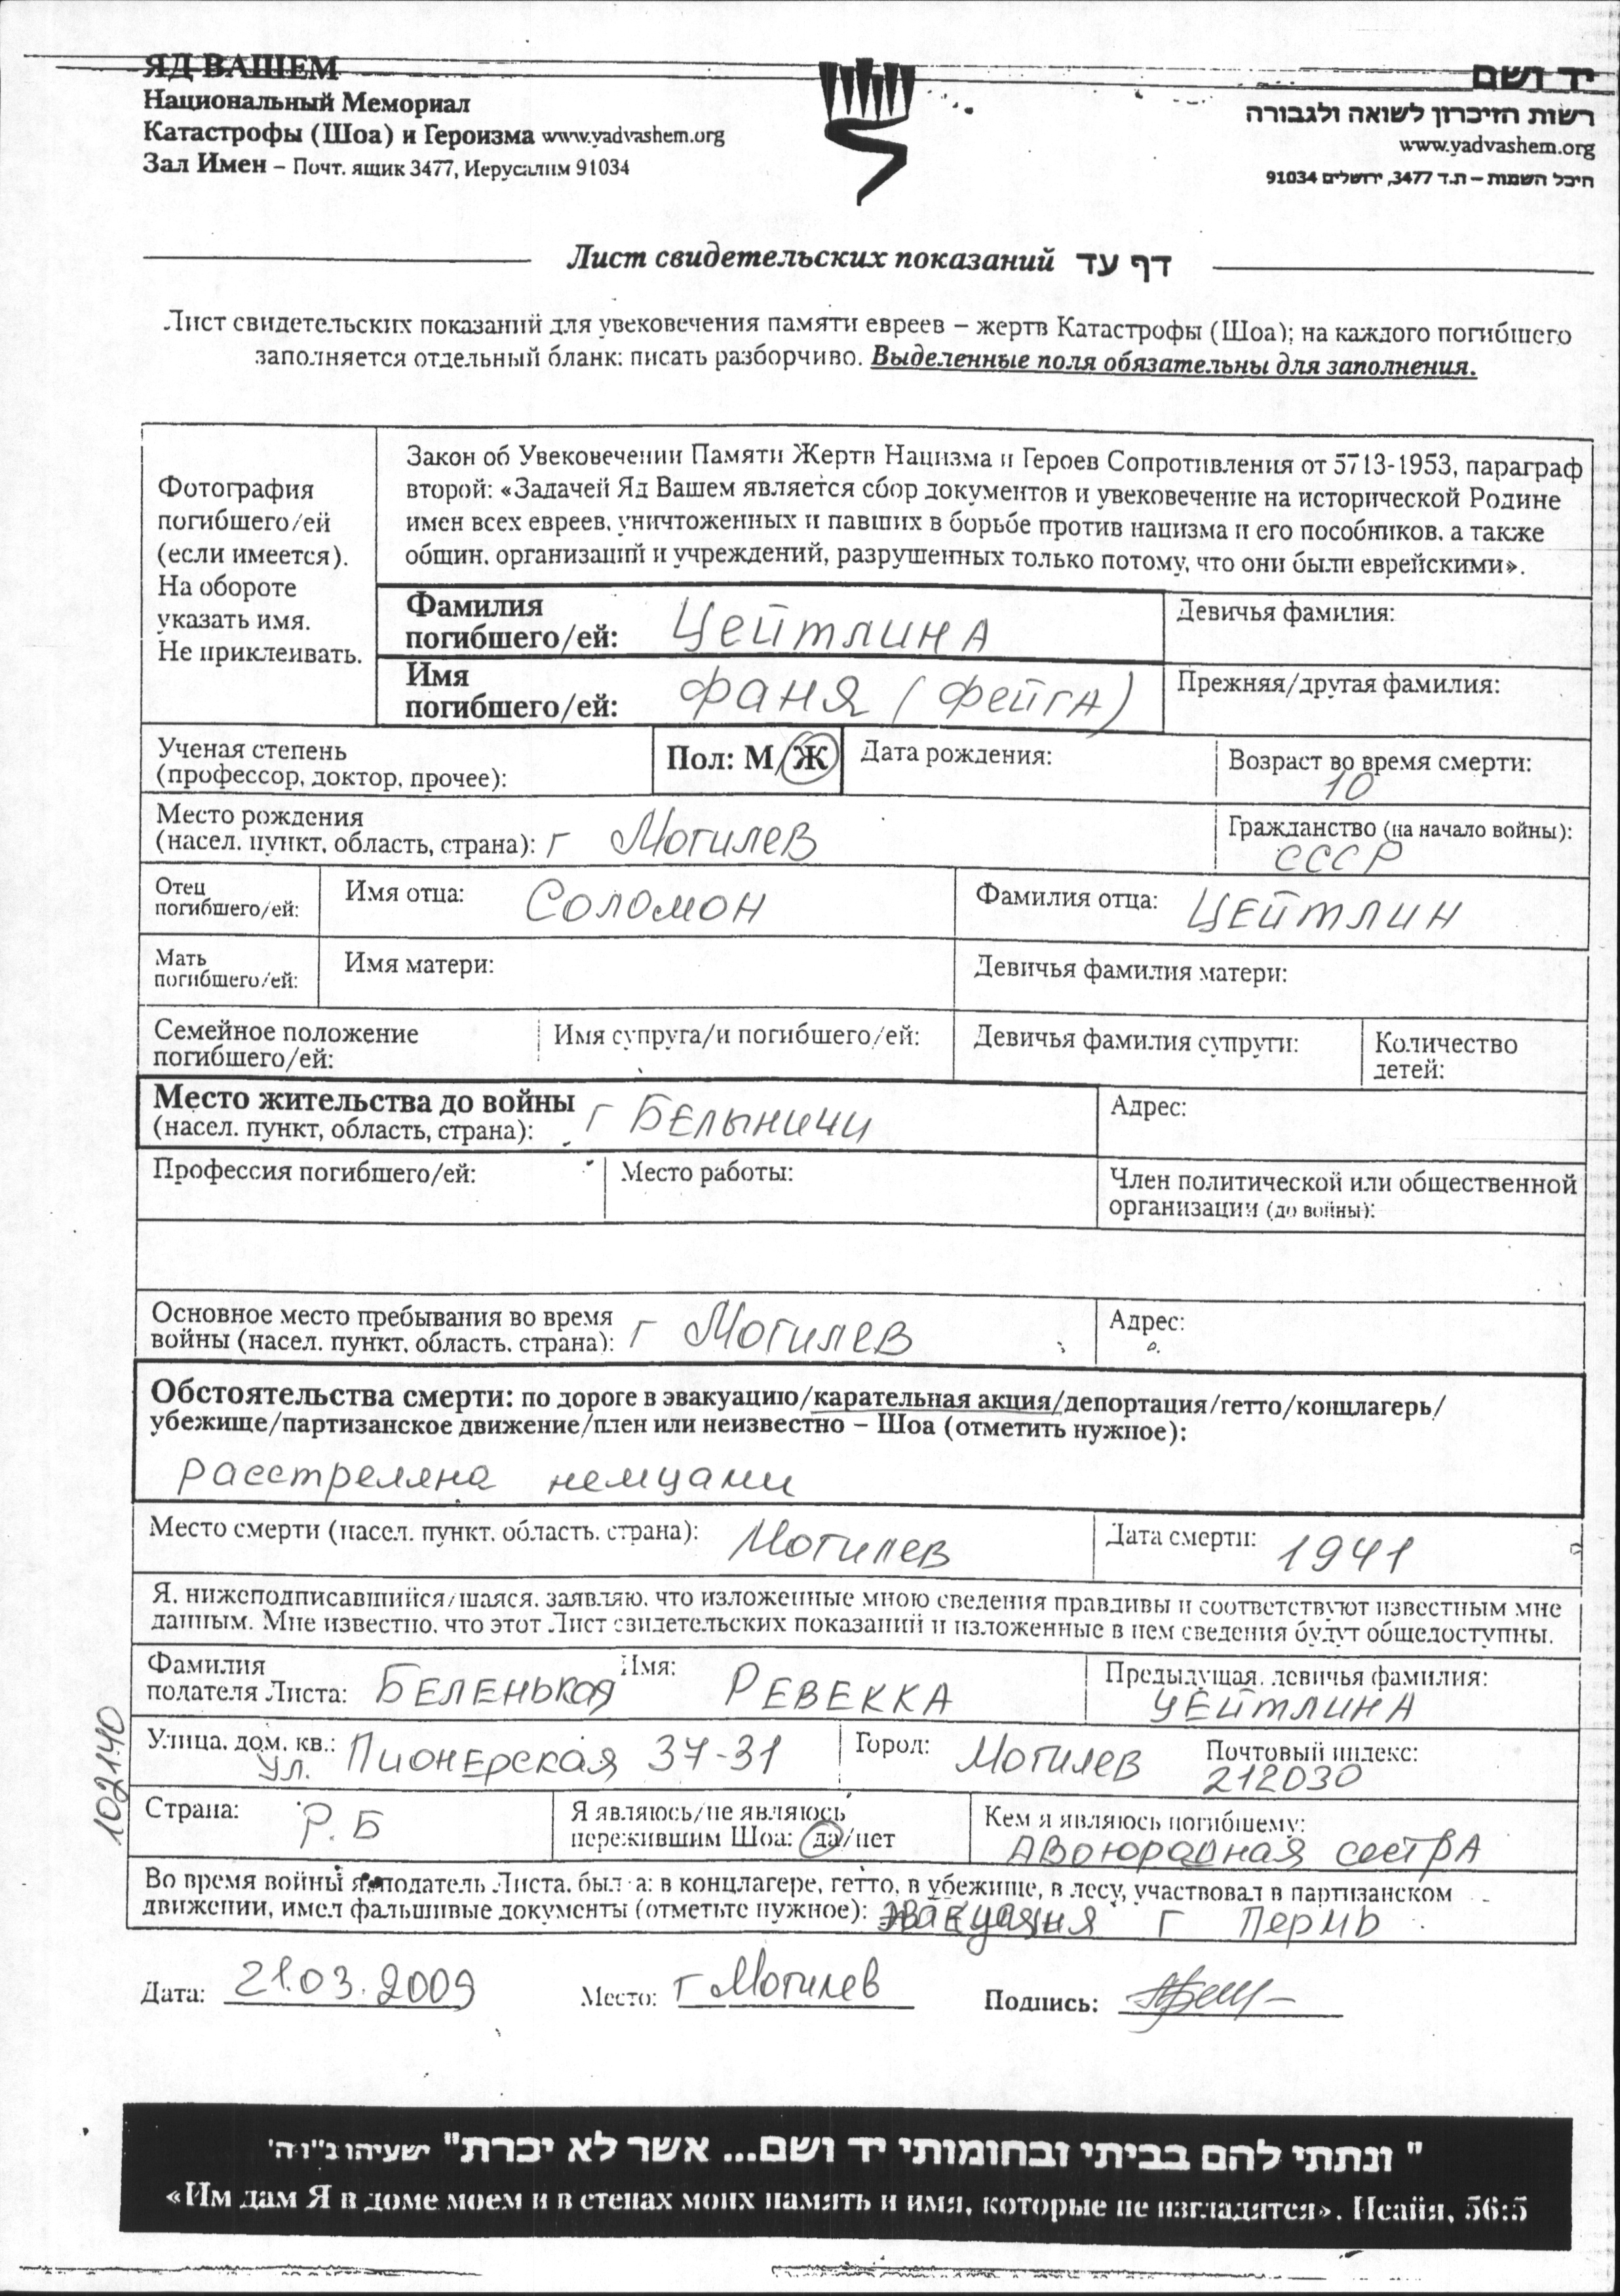 ЯД ВАШЕМ
Национальный Мемориал
Катастрофы (Шоа) и Героизма www.yadvashem.org
Зал Имен – Почт. ящик 3477, Иерусалим 91034
יד ושם
רשות הזיכרון לשואה ולגבורה
www.yadvashem.org
היכל השמות – ת.ד 3477, ירושלים 91034
Лист свидетельских показаний דף עד
Лист свидетельских показаний для увековечения памяти евреев – жертв Катастрофы (Шоа); на каждого погибшего
заполняется отдельный бланк: писать разборчиво. Выделенные поля обязательны для заполнения.
Фотография
погибшего/ей
(если имеется).
На обороте
указать имя.
Не приклеивать.
Закон об Увековечении Памяти Жертв Нацизма и Героев Сопротивления от 5713-1953, параграф
второй: «Задачей Яд Вашем является сбор документов и увековечение на исторической Родине
имен всех евреев, уничтоженных и павших в борьбе против нацизма и его пособников, а также
общин, организаций и учреждений, разрушенных только потому, что они были еврейскими».
Фамилия
погибшего/ей: Цейтлина
Девичья фамилия:
Имя
погибшего/ей: Фаня (Фейга)
Прежняя/другая фамилия:
Ученая степень
(профессор, доктор, прочее):
Пол: М/Ж
Дата рождения:
Возраст во время смерти:
10
Место рождения
(насел. пункт, область, страна): г Могилев
Гражданство (на начало войны):
СССР
Отец
погибшего/ей:
Имя отца: Соломон
Фамилия отца: Цейтлин
Мать
погибшего/ей:
Имя матери:
Девичья фамилия матери:
Семейное положение
погибшего/ей:
Имя супруга/и погибшего/ей:
Девичья фамилия супруги:
Количество
детей:
Место жительства до войны
(насел. пункт, область, страна): г Белыничи
Адрес:
Профессия погибшего/ей:
Место работы:
Член политической или общественной
организации (до войны):
Основное место пребывания во время
войны (насел. пункт, область, страна): г Могилев
Адрес:
Обстоятельства смерти: по дороге в эвакуацию/карательная акция/депортация/гетто/концлагерь/
убежище/партизанское движение/плен или неизвестно – Шоа (отметить нужное):
расстреляна немцами
Место смерти (насел. пункт, область, страна): Могилев
Дата смерти: 1941
Я, нижеподписавшийся/шаяся, заявляю, что изложенные мною сведения правдивы и соответствуют известным мне
данным. Мне известно, что этот Лист свидетельских показаний и изложенные в нем сведения будут общедоступны.
Фамилия
подателя Листа: Беленькая
Имя: Ревекка
Предыдущая, девичья фамилия:
Цейтлина
Улица, дом, кв.:
ул. Пионерская 37-31
Город: Могилев
Почтовый индекс:
212030
Страна: Р.Б
Я являюсь/не являюсь
пережившим Шоа: да/нет
Кем я являюсь погибшему:
двоюродная сестра
Во время войны я, податель Листа, был/а: в концлагере, гетто, в убежище, в лесу, участвовал в партизанском
движении, имел фальшивые документы (отметьте нужное): эвакуация г Пермь
102140
Дата: 21.03.2009
Место: г Могилев
Подпись:
" ונתתי להם בביתי ובחומותי יד ושם... אשר לא יכרת" ישעיהו נ"ו ה'
«Им дам Я в доме моем и в стенах моих память и имя, которые не изгладятся». Исайя, 56:5